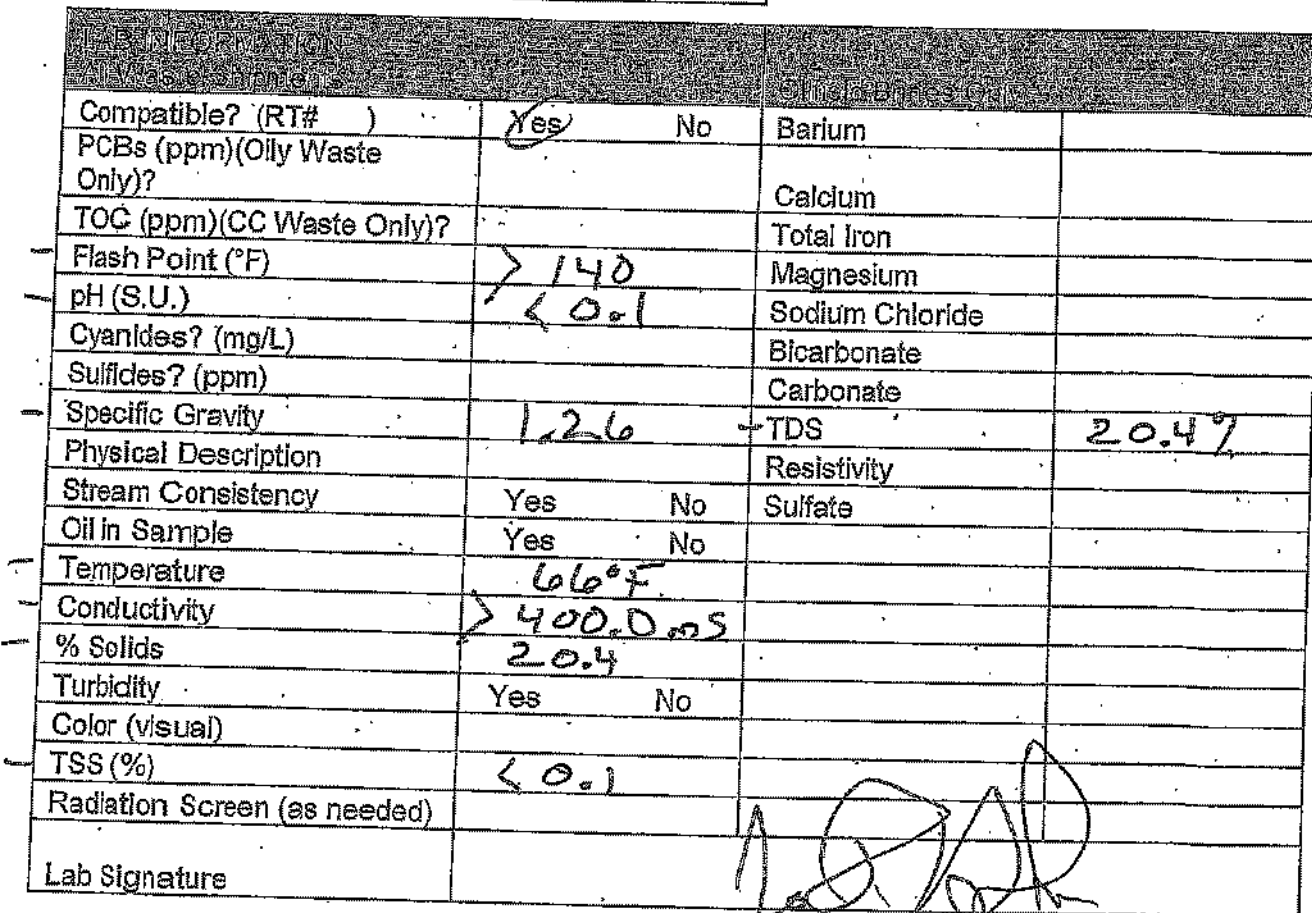 LAB INFORMATION
All Waste Shipments
Compatible? (RT# ) Yes No Barium
PCBs (ppm)(Oily Waste
Only)? Calcium
TOC (ppm)(CC Waste Only)? Total Iron
Flash Point (°F) > 140 Magnesium
pH (S.U.) < 0.1 Sodium Chloride
Cyanides? (mg/L) Bicarbonate
Sulfides? (ppm) Carbonate
Specific Gravity 1.26 TDS 20.4%
Physical Description Resistivity
Stream Consistency Yes No Sulfate
Oil in Sample Yes No
Temperature 66°F
Conductivity > 400.0 mS
% Solids 20.4
Turbidity Yes No
Color (visual)
TSS (%) < 0.1
Radiation Screen (as needed)
Lab Signature